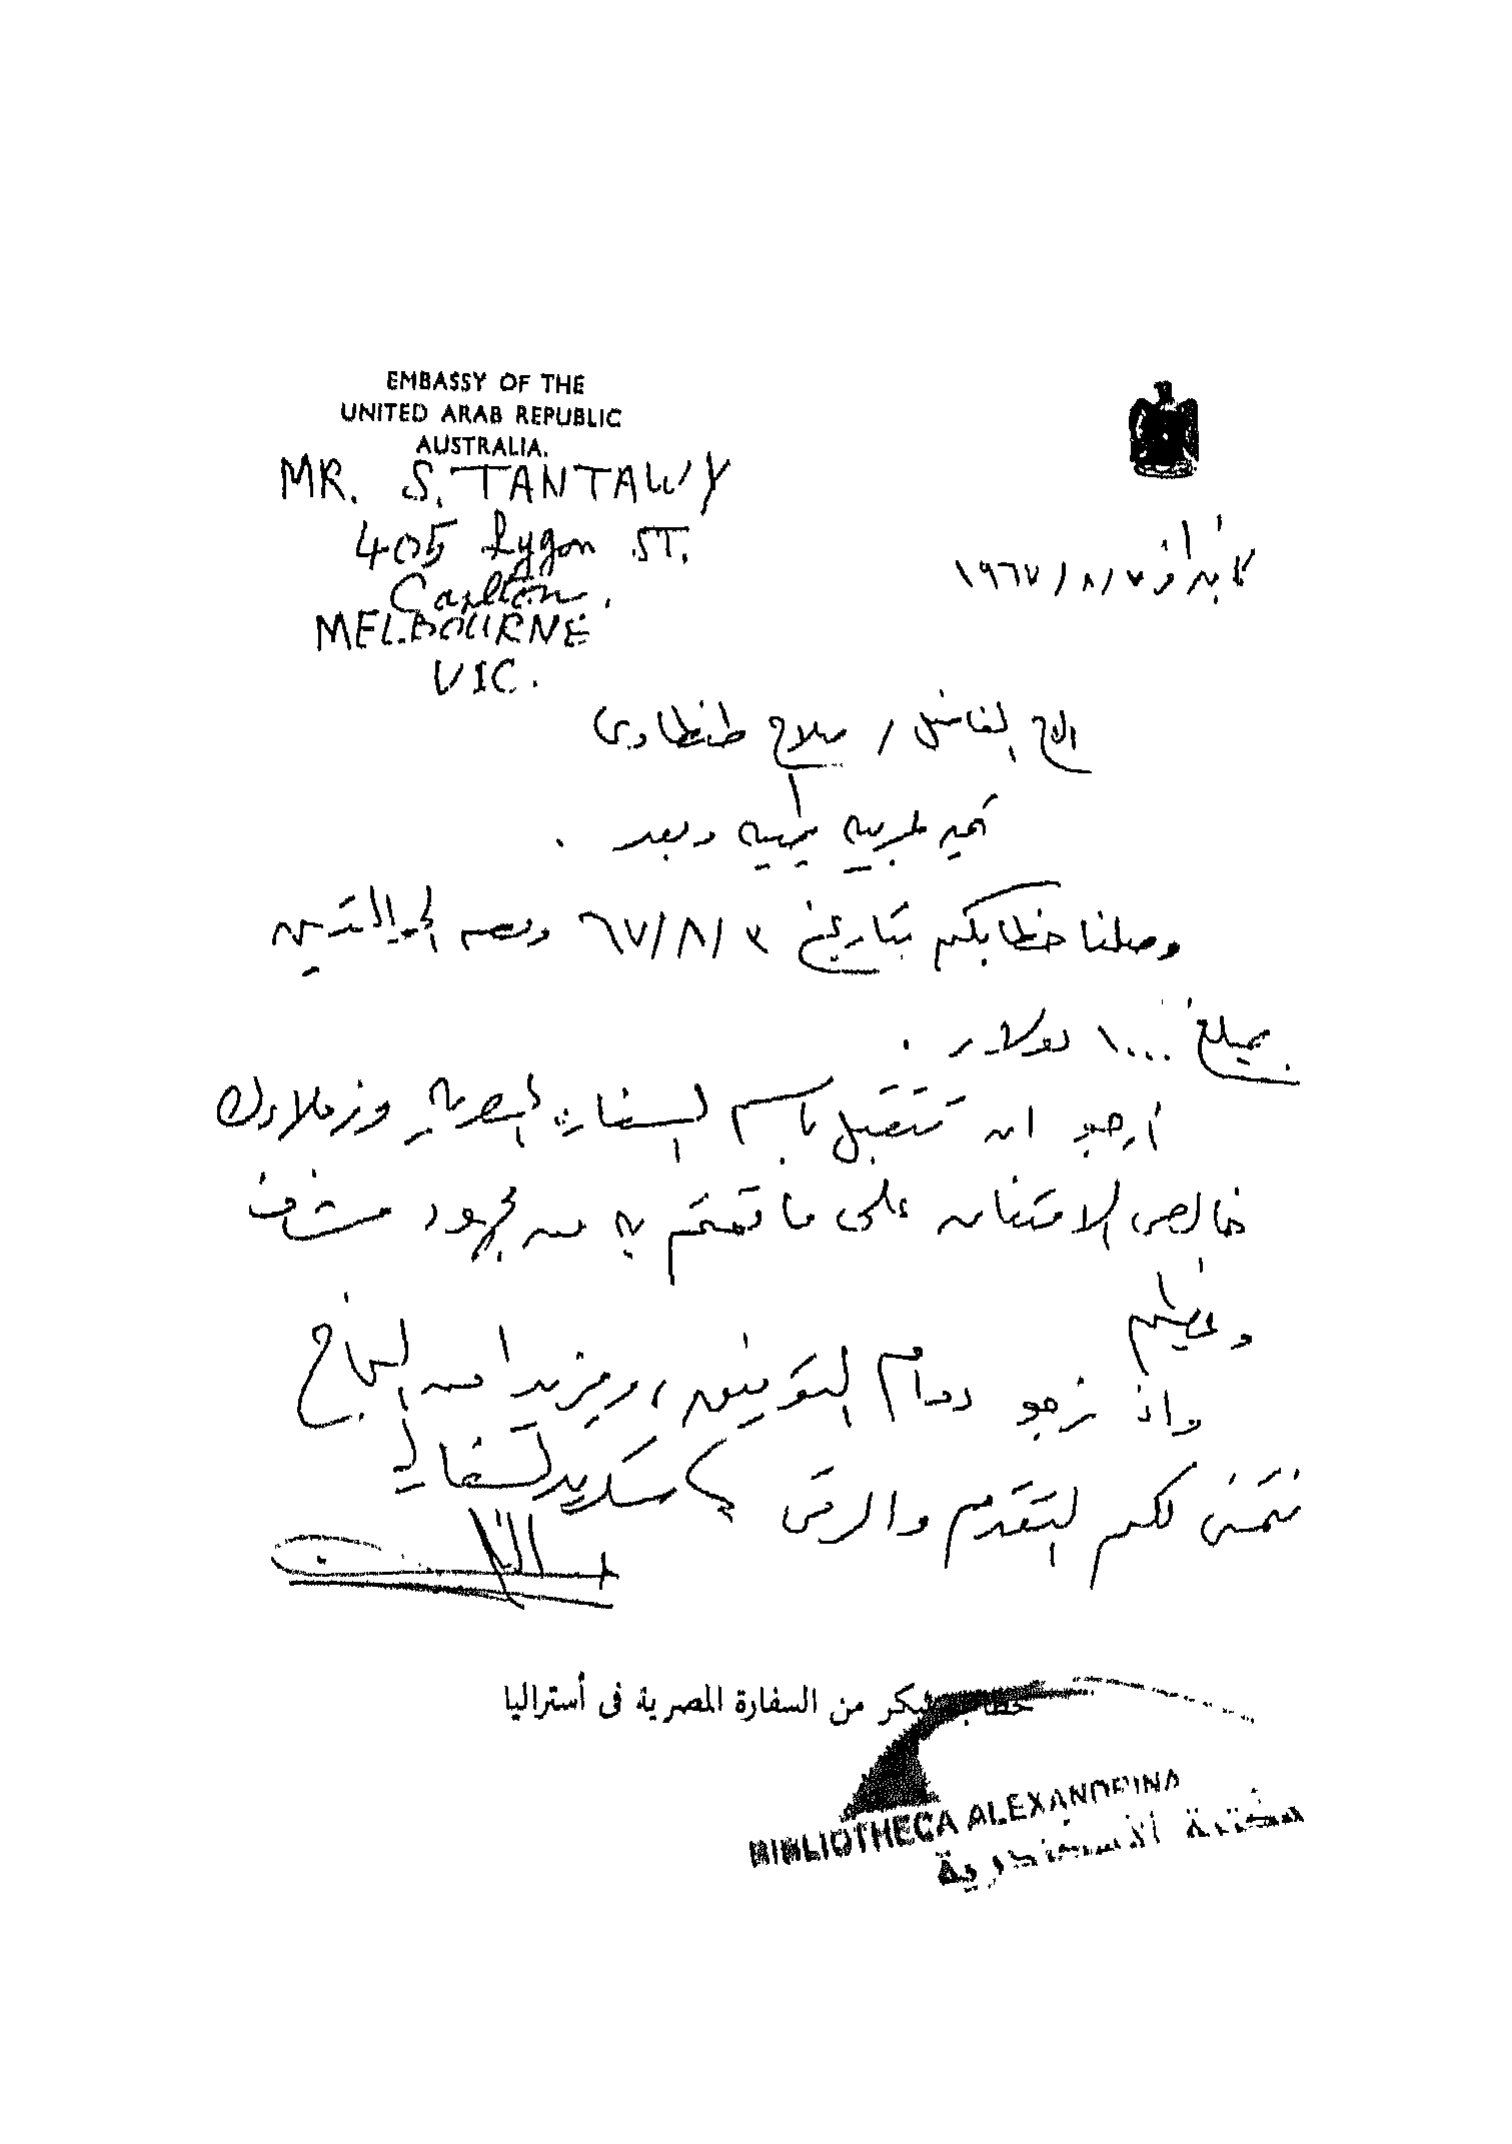 EMBASSY OF THE
UNITED ARAB REPUBLIC
AUSTRALIA.
MR. S. TANTAWY
405 Lygon ST.
Carlton.
MELBOURNE
VIC.
كانبرا فى ٧/٨/١٩٦٧
الاخ الفاضل / صلاح طنطاوى
تحيه طيبه وبعد .
وصلنا خطابكم بتاريخ ٣/٨/٦٧ وبه الحوالتين
بمبلغ ١٠٠٠ دولار .
أرجو ان تتقبل باسم السفارة المصرية وزملاءك
خالص الامتنان على ما قمتم به من مجهود مشرف
وعظيم
واذ نرجو دوام التوفيق ، ومزيدا من النجاح
نتمنى لكم التقدم والرقى
خطاب شكر من السفارة المصرية فى أستراليا
BIBLIOTHECA ALEXANDRINA
مكتبة الأسكندرية